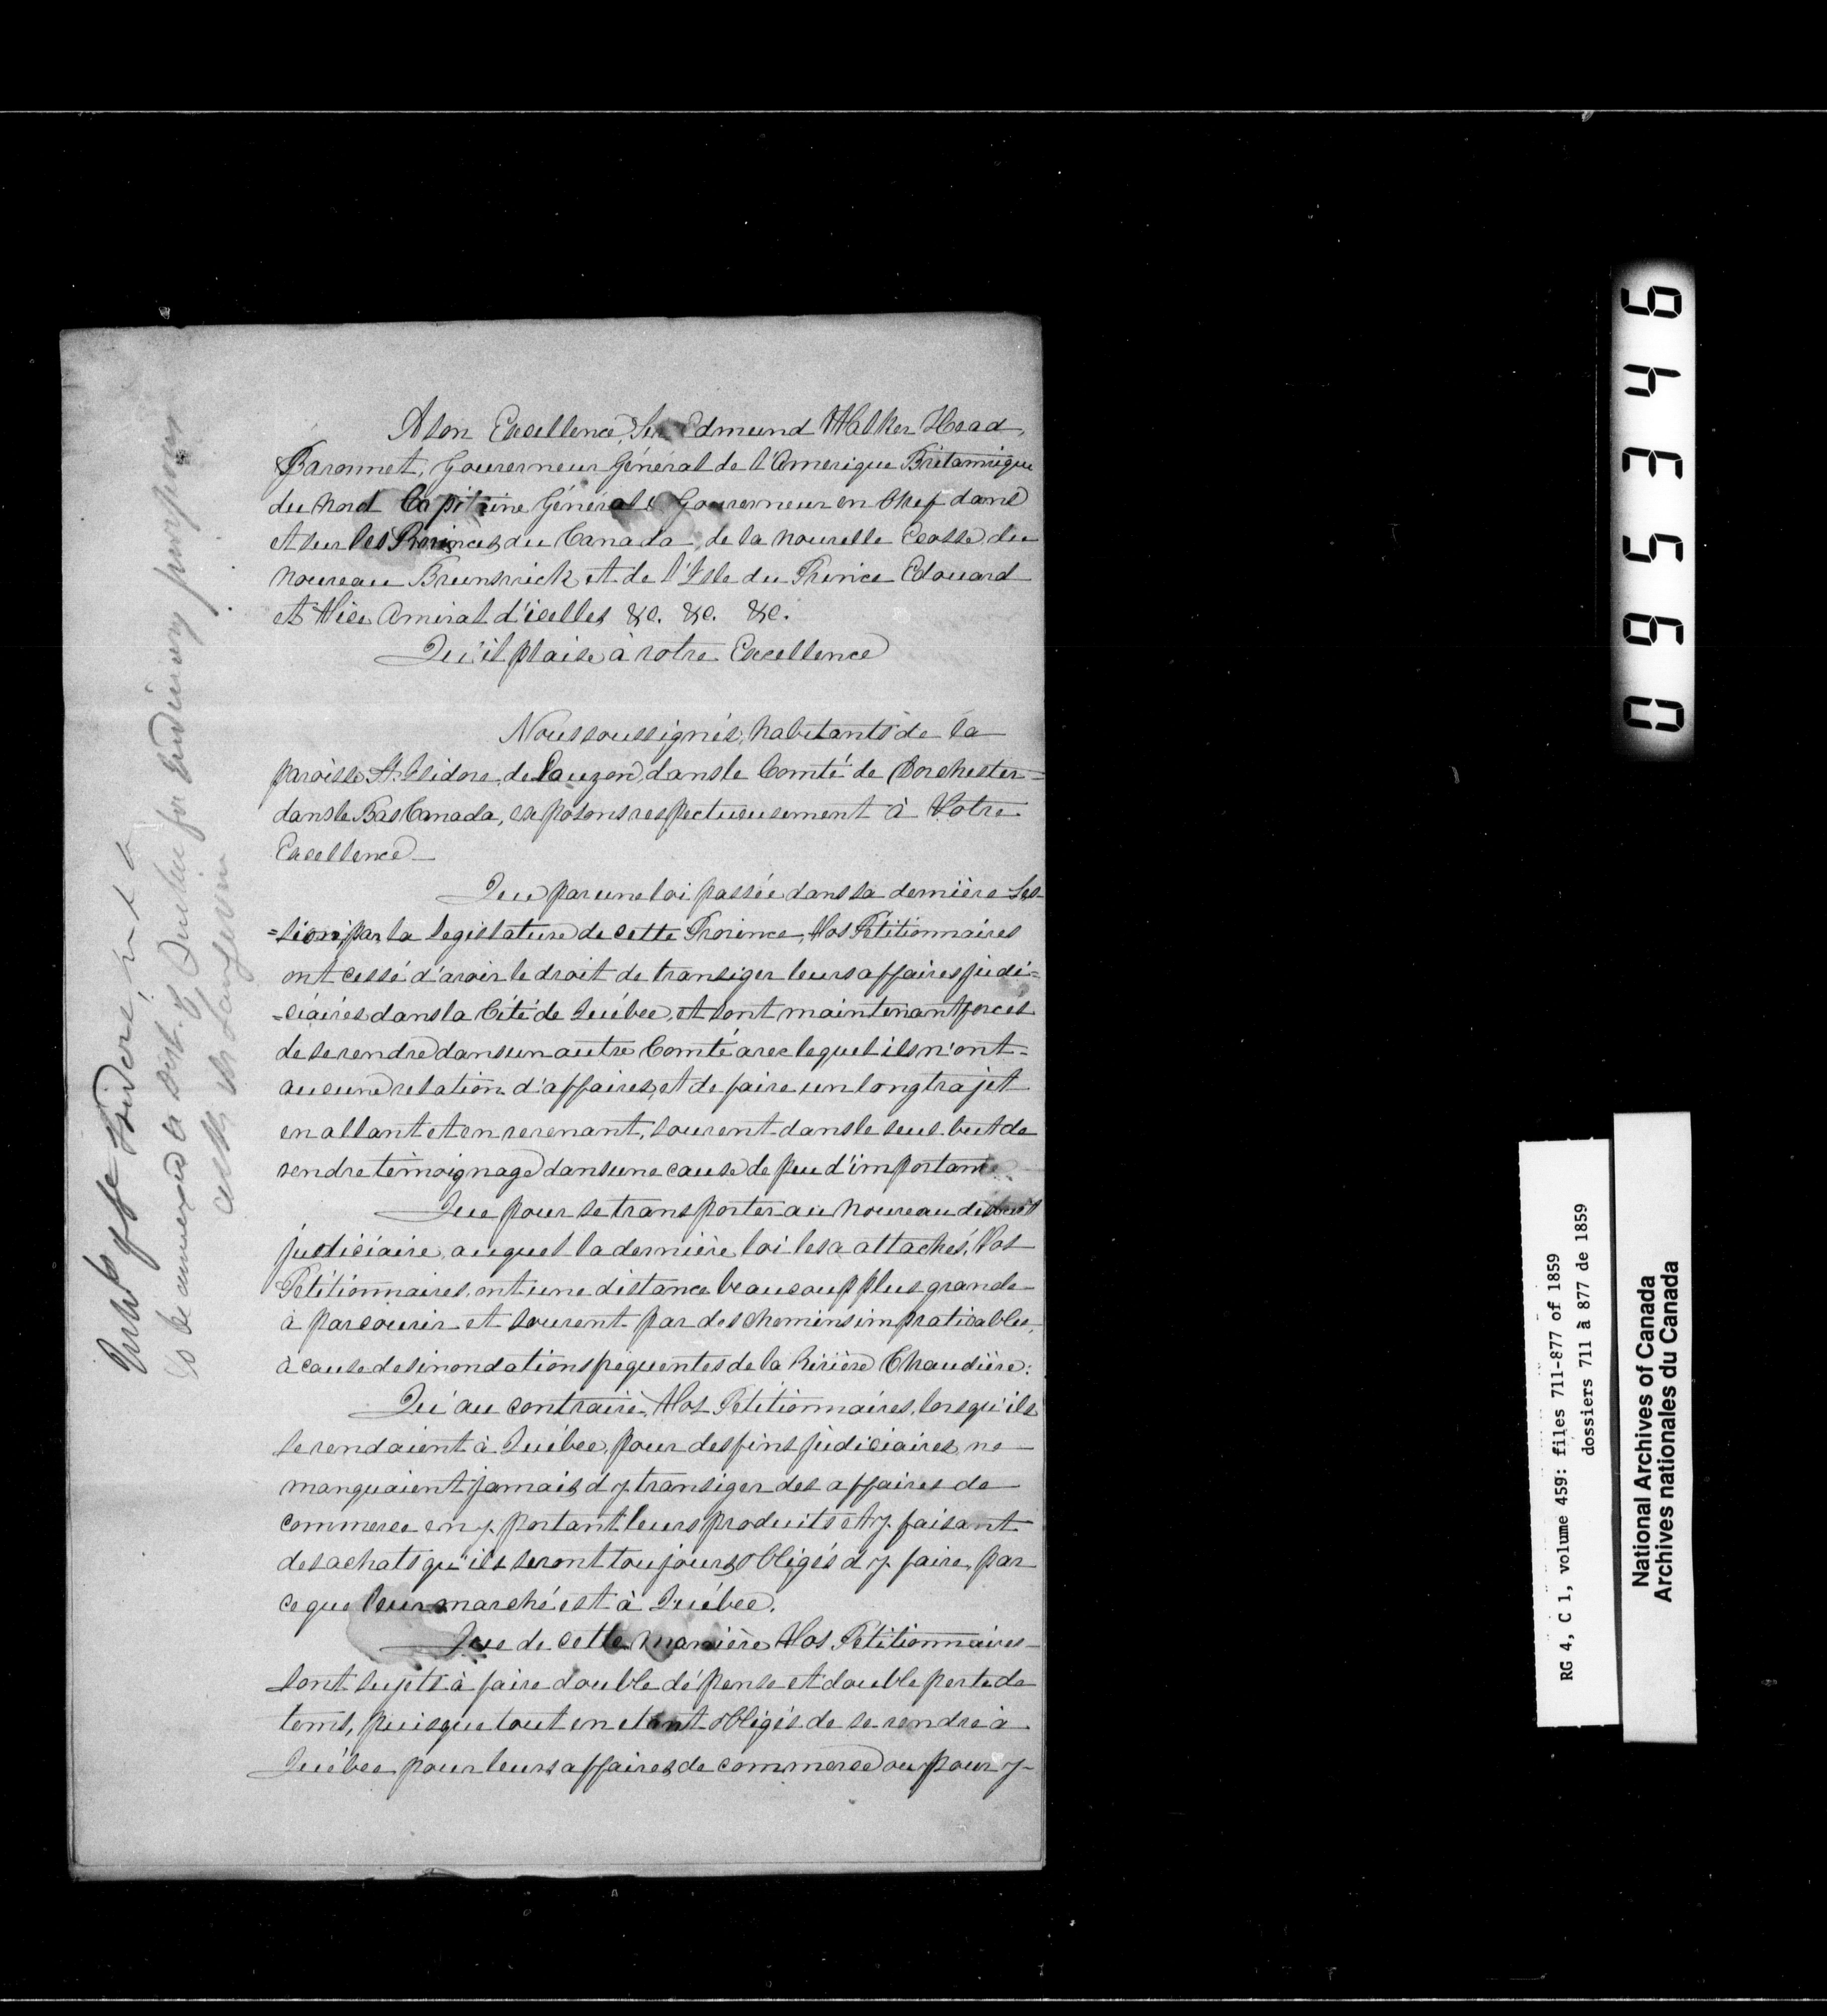 A Son Excellence, Sir Edmund Walker Head,
Baronnet, Gouverneur Général de l'Amerique Britannique
du Nord Capitaine Général & Gouverneur en Chef dans
et sur les Provinces du Canada, de la Nouvelle Ecosse, du
Nouveau Brunswick et de l'Isle du Prince Edouard
et Vice Amiral d'icelles &c. &c. &c.
Qu'il plaise à votre Excellence
Nous soussignés, habitants de la
paroisse St. Isidore, de Lauzon, dans le Comté de Dorchester
dans le Bas Canada, exposons respectueusement à Votre
Excellence
Que par une loi passée dans la dernière Ses-
=sion, par la legislature de cette Province, Vos Pétitionnaires
ont cessé d'avoir le droit de transiger leurs affaires judi=
=ciaires dans la Cité de Québec, et sont maintenant forcés
de se rendre dans un autre Comté avec lequel ils n'ont
aucune relation d'affaires, et de faire un long trajet
en allant et en revenant, souvent dans le seul but de
rendre témoignage dans une cause de peu d'importance
Que pour se transporter au nouveau district
judiciaire, auquel la dernière loi les a attachés, Vos
Pétitionnaires, ont une distance beaucoup plus grande
à parcourir et souvent par des chemins impraticables,
à cause des inondations frequentes de la Rivière Chaudière:
Qu'au contraire, Vos Pétitionnaires, lorsqu'ils
se rendaient à Québec, pour des fins judiciaires, ne
manquaient jamais d'y transiger des affaires de
commerce en y portant leurs produits et y faisant
des achats qu'ils seront toujours obligés d'y faire, par
ce que leur marché est à Québec.
Que de cette manière Vos Pétitionnaires
sont sujets à faire double dépense et double perte de
tems, puisque tout en etant obligés de se rendre à
Québec pour leurs affaires de commerce ou pour y
of St Isidore,
to be annexed to dist. of Quebec for Judiciary purposes
Langevin
095346
RG 4, C 1, volume 459: files 711-877 of 1859
dossiers 711 à 877 de 1859
National Archives of Canada
Archives nationales du Canada